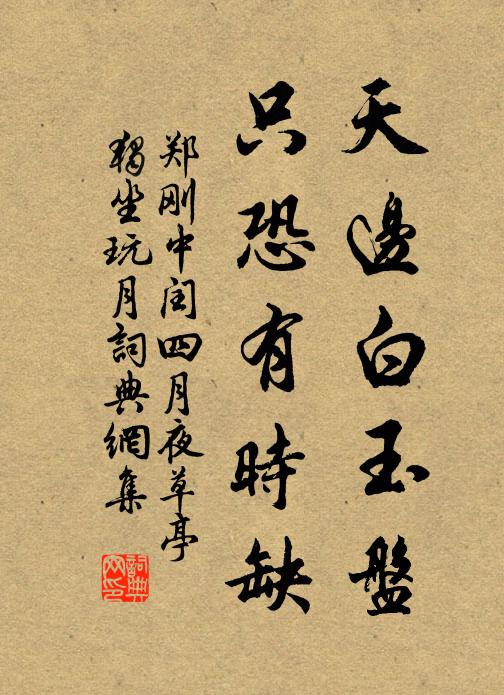 天邊白玉盤
只恐有時缺
郑刚中闰四月夜草亭
獨坐玩月詞典網集
詞典
网印